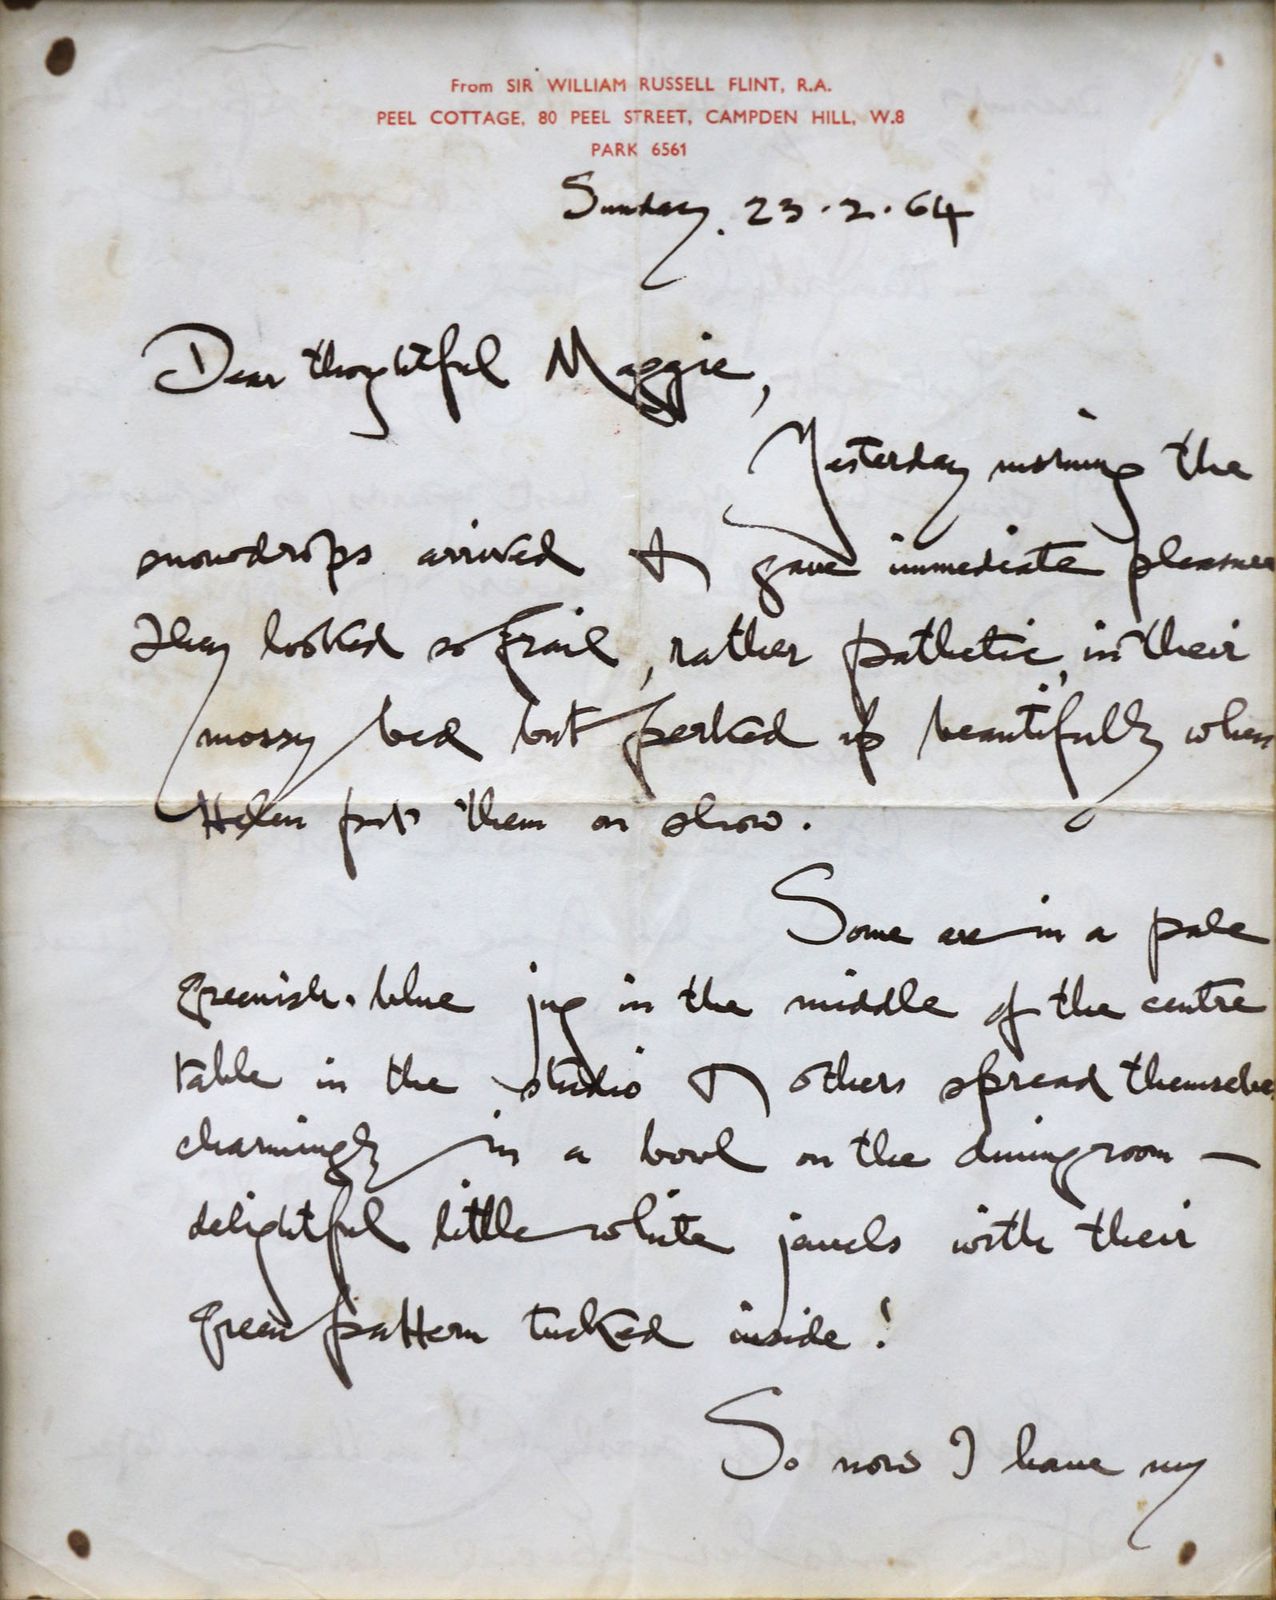 From SIR WILLIAM RUSSELL FLINT, R.A.
PEEL COTTAGE, 80 PEEL STREET, CAMPDEN HILL, W.8
PARK 6561
Sunday. 23.2.64
Dear thoughtful Maggie,
Yesterday morning the
snowdrops arrived & gave immediate pleasure
They looked so frail, rather pathetic, in their
mossy bed but perked up beautifully when
Helen put them on show.
Some are in a pale
greenish-blue jug in the middle of the centre
table in the studio & others spread themselves
charmingly in a bowl on the diningroom —
delightful little white jewels with their
green pattern tucked inside!
So now I have my